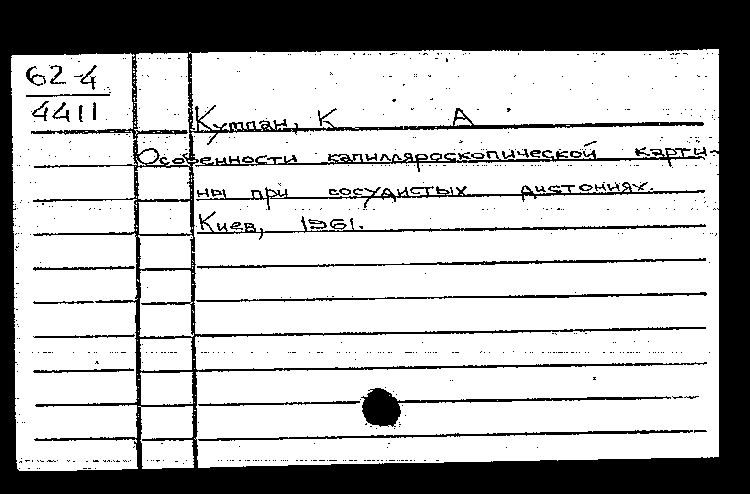 62-4
4411
Кутпан, К А
Особенности капилляроскопической карти-
ны при сосудистых дистониях.
Киев, 1961.